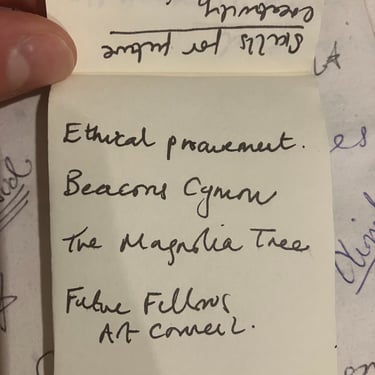 Skills for future
creativity
Ethical procurement.
Beacons Cymru
The Magnolia Tree
Future Fellows
Art Council.